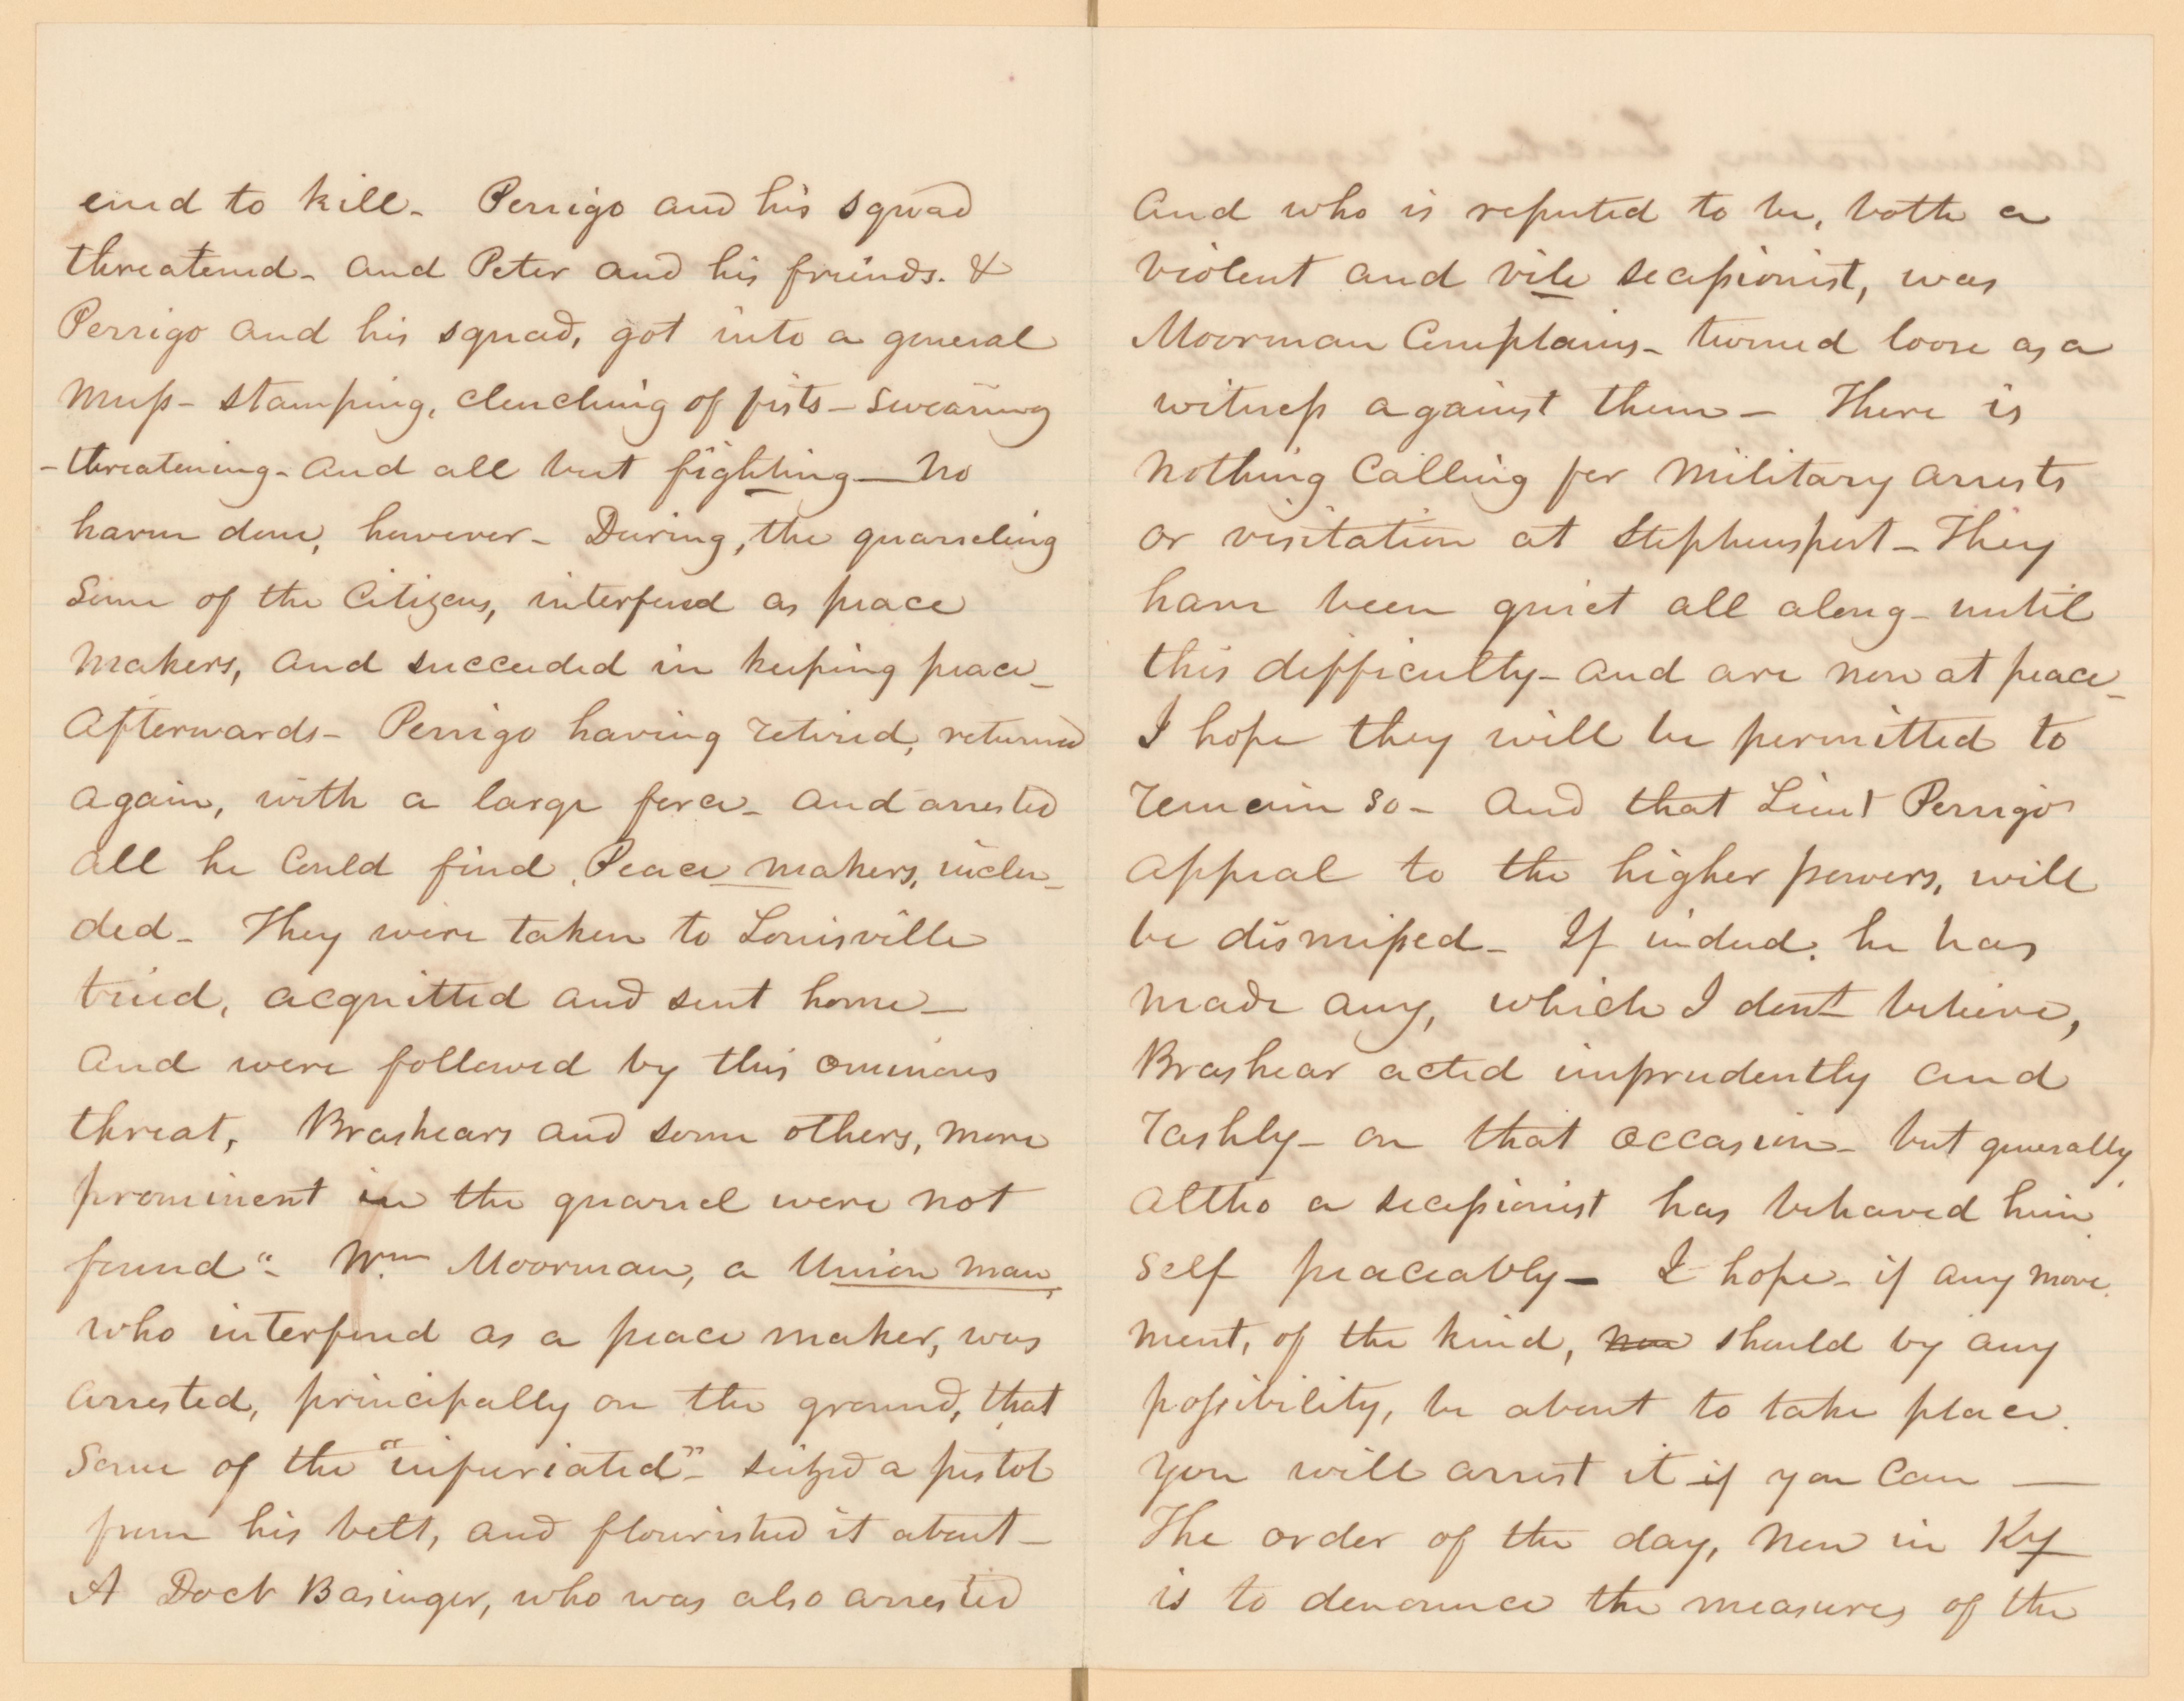 ened to kill- Perrigo and his squad
threatened- and Peter and his friends. &
Perrigo and his squad, got into a general
muss- stamping, clenching of fists- swearing
-threatening- and all but fighting- No
harm done, however- During, the quarreling
some of the citizens, interfered as peace
makers, and succeeded in keeping peace-
Afterwards- Perrigo having retired, returned
again, with a large force- and arrested
all he could find, Peace makers, inclu-
ded- They were taken to Louisville
tried, acquitted and sent home-
And were followed by this ominous
threat, Brashears and some others, more
prominent in the quarrel were not
found"- Wm Moorman, a Union man,
who interfered as a peace maker, was
arrested, principally on the ground, that
some of the "infuriated"- seized a pistol
from his belt, and flourished it about-
A Doct Basinger, who was also arrested
And who is reputed to be, both a
violent and vile secessionist, was
Moorman complains- turned loose as a
witness against them- There is
nothing calling for military arrests
or visitation at Stephensport- They
have been quiet all along- until
this difficulty- and are now at peace-
I hope they will be permitted to
remain so- And that Lieut Perrigos
appeal to the higher powers, will
be dismissed- If indeed, he has
made any, which I dont believe,
Brashear acted imprudently and
rashly- on that occasion- but generally,
altho a secessionist has behaved him
self peaceably- I hope- if any move
ment, of the kind, now should by any
possibility, be about to take place.
you will arrest it if you can-
The order of the day, now in Ky
is to denounce the measures of the